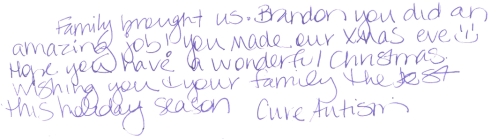 Family brought us. Brandon you did an
amazing job! you made our Xmas eve
Hope you Have a wonderful Christmas.
Wishing you & your family the best
this holiday season Cure Autism